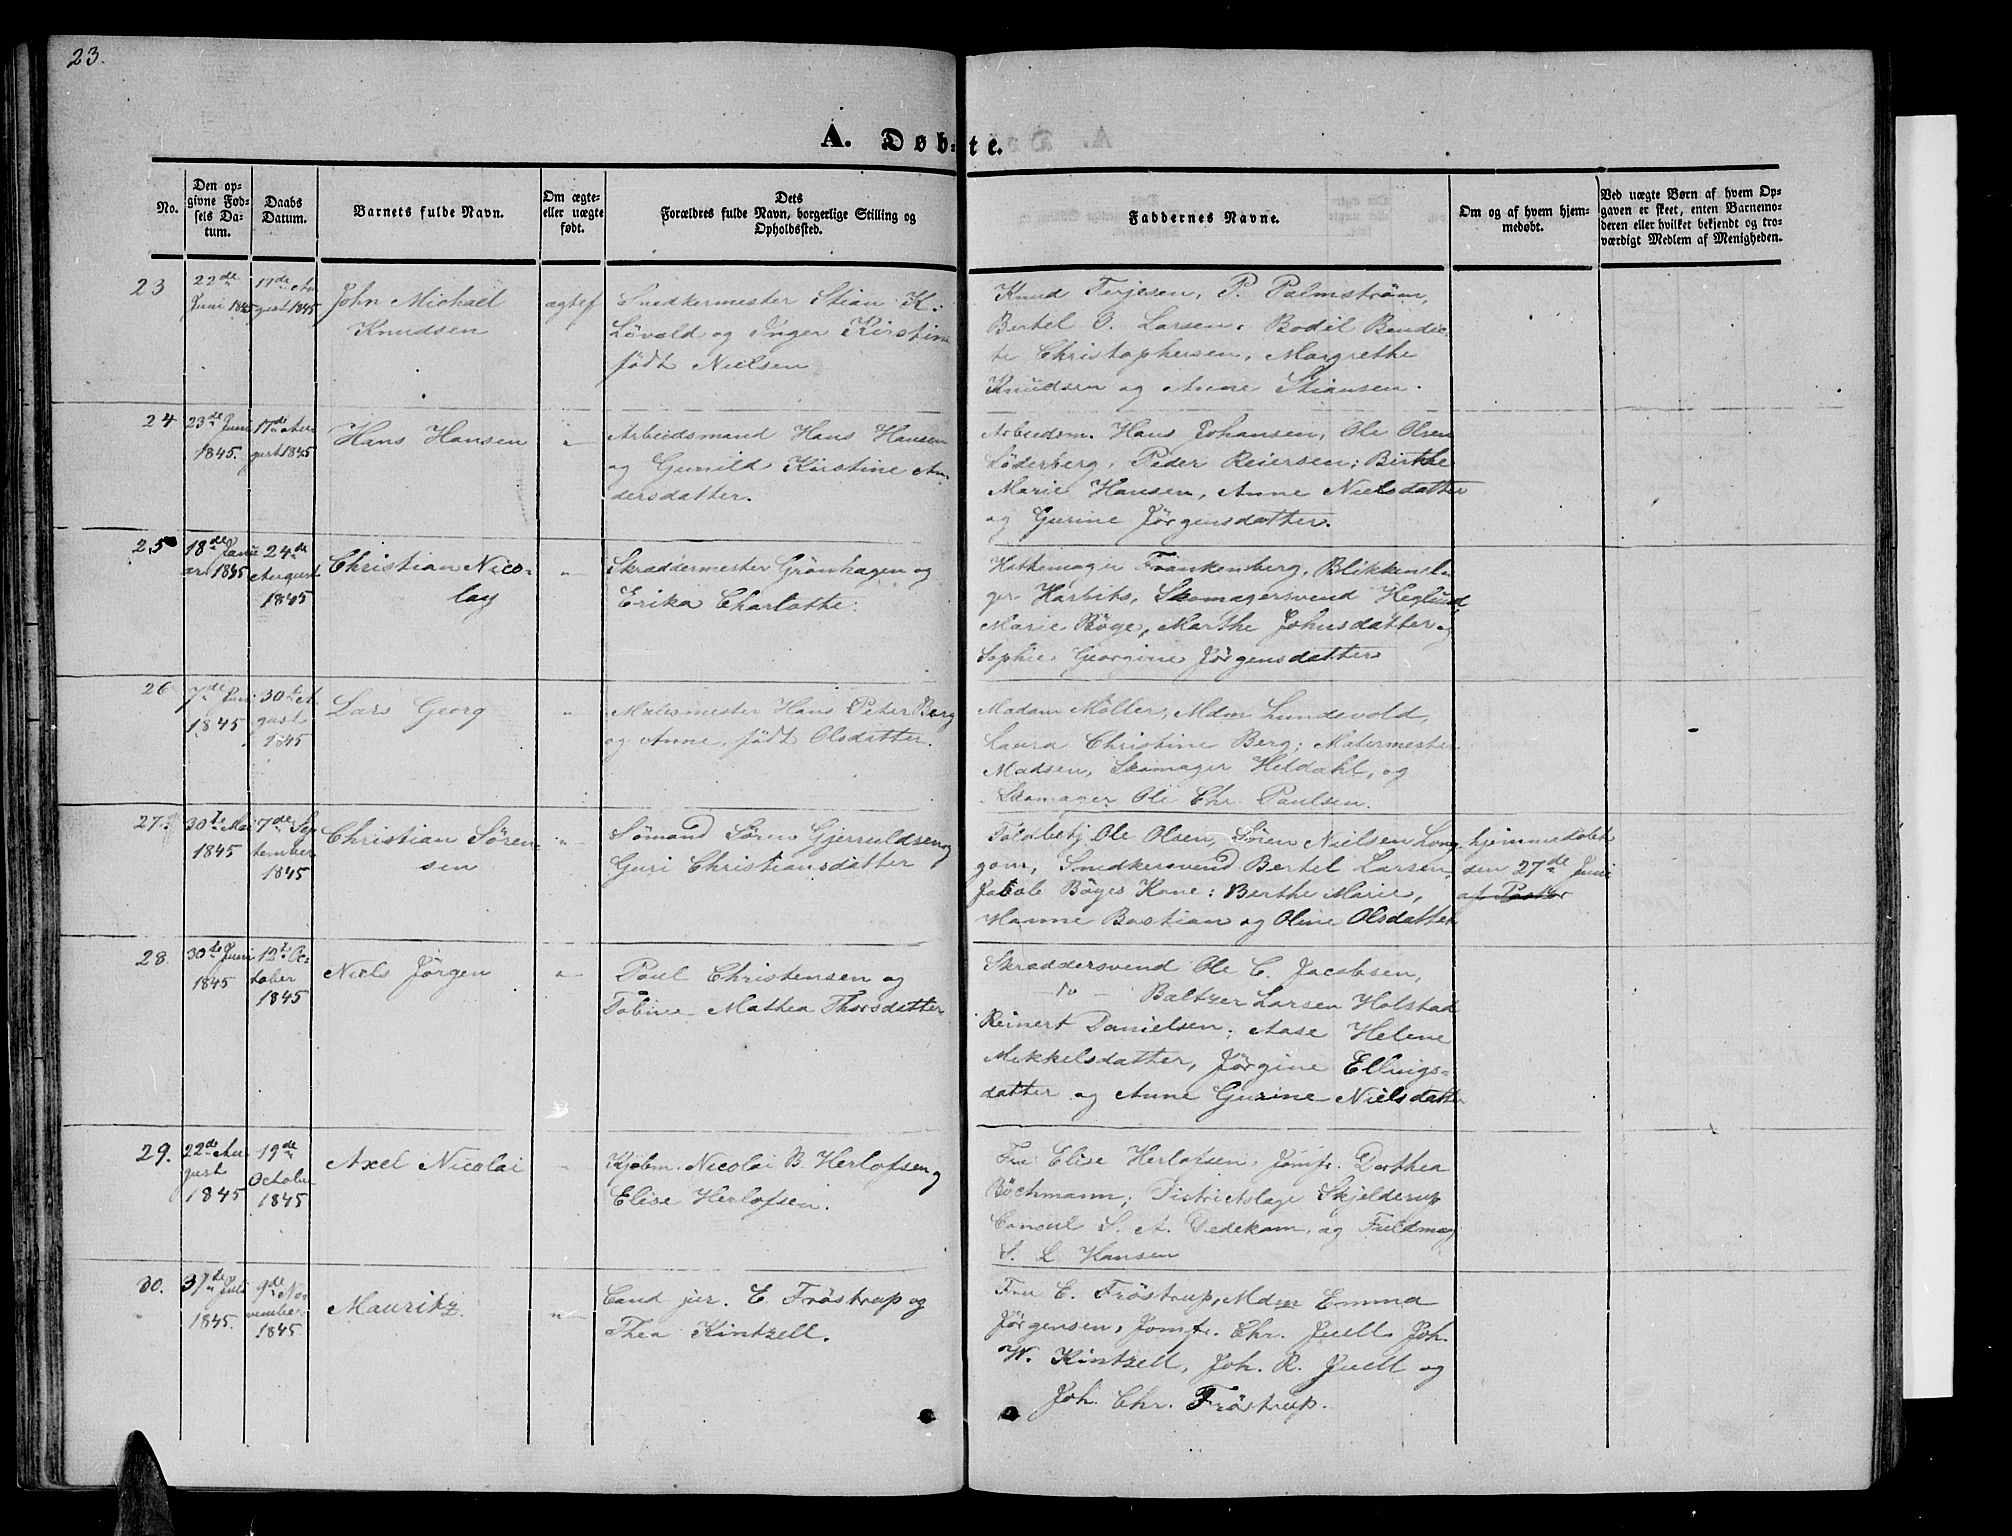 23.
A. Døb-te.
No.
Den op-
givne Fød-
sels Da-
tum.
Daabs
Datum.
Barnets fulde Navn.
Om ægte-
eller uægte
født.
Dets
Forældres fulde Navn, borgerlige Stilling og
Opholdssted.
Faddernes Navne.
Om og af hvem hjem-
medøbt.
Ved uægte Børn af hvem Op-
gaven er skeet, enten Barnemo-
deren eller hvilket bekjendt og tro-
værdigt Medlem af Menigheden.
23
22de
Juni 1845
17de Au
gust 1845
John Michael
Knudsen
ægtef
Snedkermester Stian K.
Lövold og Inger Kirstine
født Nielsen
Knud Terjesen, P. Palmström,
Bertel O. Larsen, Bodil Bendic-
te Christophersen, Margrethe
Knudsen og Anne Stiansen.
24
23de Juni
1845.
17de Au
gust 1845
Hans Hansen
"
Arbeidsmand Hans Hansen
og Gunild Kirstine An-
dersdatter.
Arbeidsm. Hans Johansen, Ole Olsen
Löderberg, Peder Reiersen; Birthe
Marie Hansen, Anne Nielsdatter
og Gurine Jörgensdatter.
25
18de Janu
ar 1845
24de
August
1845
Christian Nico-
lay
"
Skræddermester Grönhagen og
Erika Charlotte.
Hattemager Frankenberg, Blikkensla-
ger Harbits, Skomagersvend Heglund
Marie Böge, Marthe Johnsdatter og
Sophie Georgine Jörgensdatter
26
7de Juni
1845
30te Au
gust
1845
Lars Georg
"
Malermester Hans Peter Berg
og Anne, født Olsdatter.
Madam Möller, Mdm Lundevold,
Laura Christine Berg; Malermester
Madsen, Skomager Heldahl, og
Skomager Ole Chr. Paulsen.
27.
30te Mai
1845
7de Sep
tember
1845
Christian Sören-
sen
"
Sömand Sören Gjeruldsen og
Guri Christiansdatter
Toldbetj. Ole Olsen, Sören Nielsen Lon-
gom, Snedkersvend Bertel Larsen,
Jacob Böges Kone: Berthe Marie,
Hanne Bastian og Oline Olsdatter
hjemmedøbt
den 27de Juni
af Pastor
28.
30te Juni
1845
12te Oc-
tober
1845
Niels Jörgen
"
Poul Christensen og
Tobine Mathea Thorsdatter
Skræddersvend Ole C. Jacobsen,
— do — Baltzer Larsen Holstad
Reinert Danielsen; Aase Helene
Mikkelsdatter, Jörgine Ellings-
datter og Anne Gurine Nielsdatter
29.
22de Au
gust
1845
19de
October
1845
Axel Nicolai
"
Kjöbm. Nicolai B. Herlofsen og
Elise Herlofsen.
Fru Elise Herlofsen, Jomfr. Dorthea
Böchmann; Districtslæge Skjelderup
Consul S. A. Dedekam, og Fuldmæg
S. L. Hansen
30.
37de Juli
1845.
9de No-
vember
1845.
Mauritz.
"
Cand jur. E Fröstrup og
Thea Kintzell.
Fru E. Fröstrup, Mdm Emma
Jörgensen, Jomfr. Chr. Juell, Joh.
W. Kintzell, Joh. R. Juell og
Joh. Chr. Fröstrup.